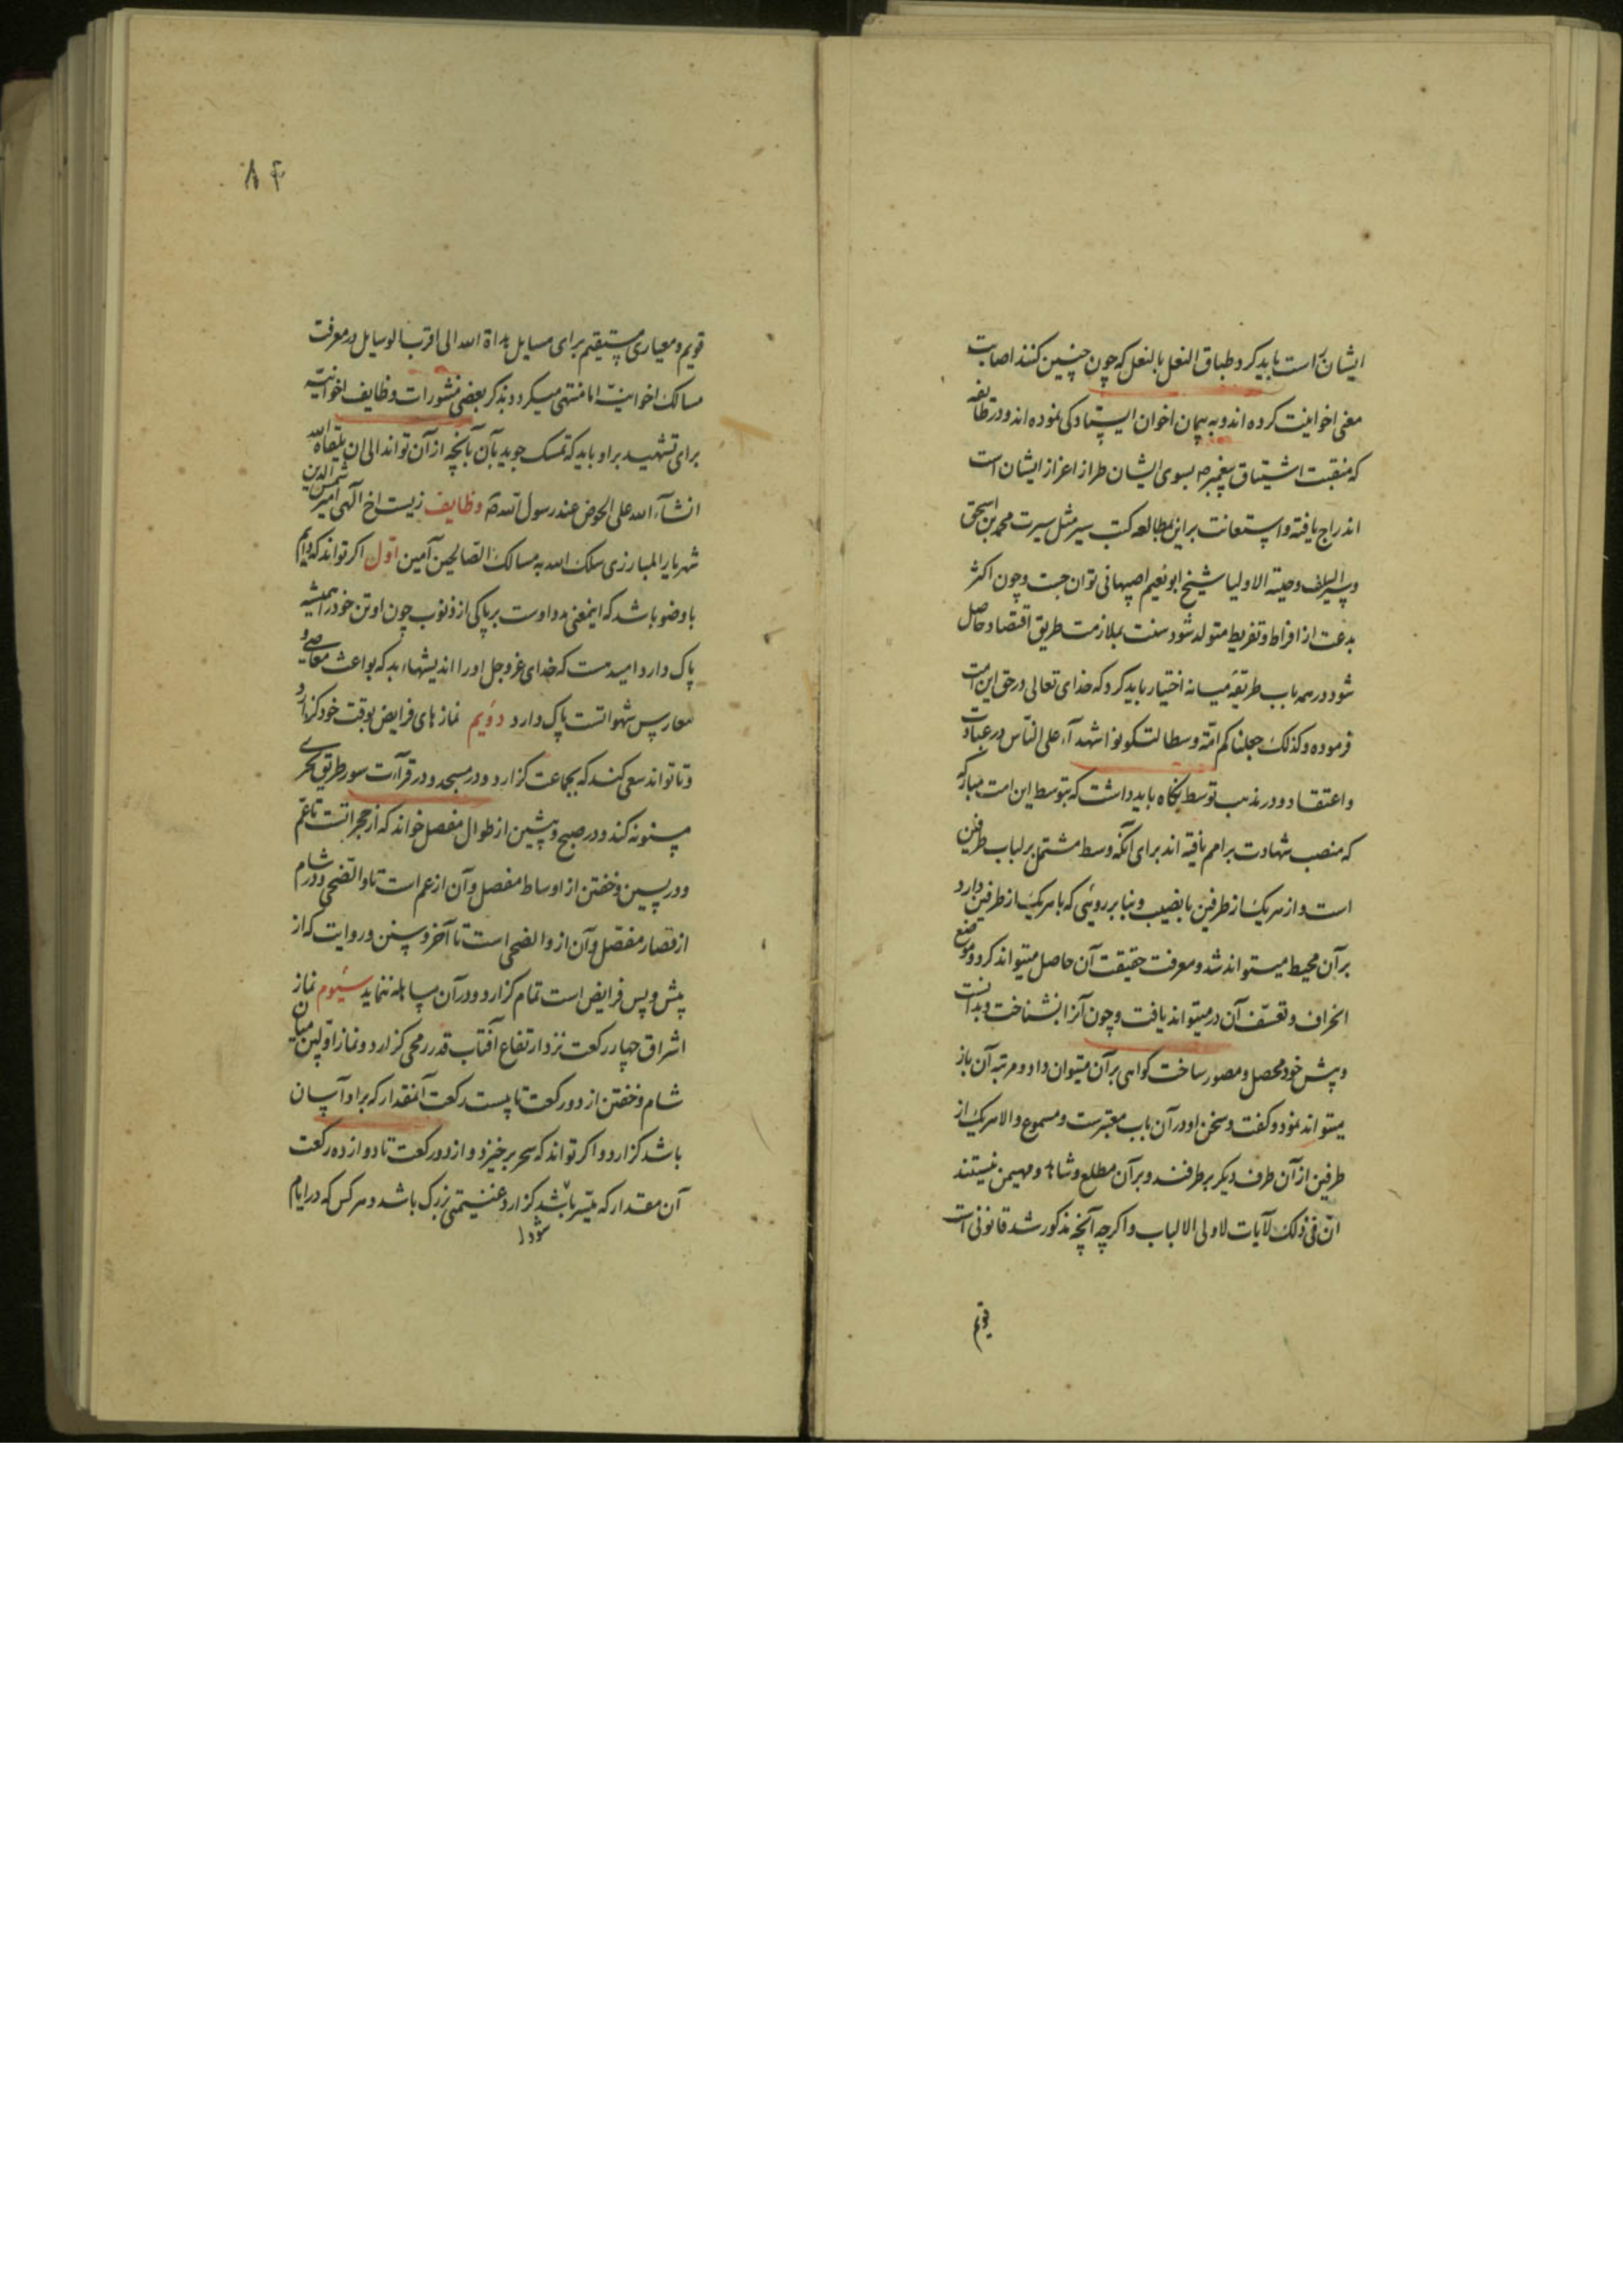 ایشان راست باید کرد و طباق النعل بالنعل که چون چنین کنند اصابت
معنی اخوانیت کرده اند و به پیمان اخوان ایستادکی نموده اند و در طائفه
که منقبت اشتیاق پیغمبر صه بسوی ایشان طراز اعزاز ایشان است
اندراج یافته و استعانت براین بمطالعه کتب سیر مثل سیرت محمد بن اسحق
و سیر السلف و حلیة الاولیا شیخ ابو نعیم اصپهانی توان جست و چون اکثر
بدعت از افراط و تفریط متولد شود سنت بملازمت طریق اقتصاد حاصل
شود در همه باب طریقهٔ میانه اختیار باید کرد که خدای تعالی در حق این امت
فرموده و کذلک جعلناکم امّة وسطا لتکونوا شهدآء علی النّاس در عبادت
و اعتقاد و در مذهب توسط نگاه باید داشت که بتوسط این امت مبارکه
که منصب شهادت بر امم یافته اند برای آنکه وسط مشتمل بر لباب طرفین
است و از هر یک از طرفین با نصیب و بنا بر روئی که با هر یک از طرفین دارد
بر آن محیط میتواند شد و معرفت حقیقت آن حاصل میتواند کرد و موضع
انحراف و تعسّف آن در میتواند یافت و چون آنرا بشناخت و بدانست
و پیش خود محصل و مصور ساخت کواهی بر آن میتوان داد و مرتبه آن باز
میتواند نمود و کفت و سخن او در آن باب معتبرست و مسموع و الا هر یک از
طرفین از آن طرف دیکر بر طرفند و بر آن مطلع و شاهد و مهیمن نیستند
انّ فی ذلک لآیات لاولی الالباب و اکرچه آنچه مذکور شد قانونی است
قویم
۸۴
قویم و معیاری مستقیم برای مسایل هداة الله الی اقرب الوسایل در معرفت
مسالک اخوانیّت اما منتهی میکردد بذکر بعضی منشورات وظایف اخوانیّه
برای تشهید بر او باید که تمسک جوید بآن بآنچه از آن تواند الی ان یلقاه الله
انشآء الله علی الحوض عند رسول الله صه وظایف زیست اخ الهی امیر شمس الدین
شهریار المبارزی سلک الله به مسالک الصالحین آمین اوّل اکر تواند که دایم
با وضو باشد که اینمعنی مدد اوست بر پاکی از ذنوب چون او تن خود را همیشه
پاک دارد امیدست که خدای عزوجل او را اندیشهاء بد که بواعث معاصی و
مغارس شهواتست پاک دارد دویم نمازهای فرایض بوقت خود کزارد و
و تا تواند سعی کند که بجماعت کزارد و در مسجد و در قرآءت سور طریق تحری
مسنونه کند و در صبح و پیشین از طوال مفصل خواند که از حجراتست تا عمّ
و در پسین و خفتن از اوساط مفصل و آن از عم است تا والضحی و در شام
از قصار مفصّل و آن از والضحی است تا آخر و سنن و روایت که از
پیش و پس فرایض است تمام کزارد و در آن مساهله ننماید سیّوم نماز
اشراق چهار رکعت نزد ارتفاع آفتاب قدر رمحی کزارد و نماز اوّابین میان
شام و خفتن از دو رکعت تا بیست رکعت آنمقدار که بر او آسان
باشد کزارد و اکر تواند که سحر برخیزد و از دو رکعت تا دوازده رکعت
آن مقدار که میّسر باشد کزارد غنیمتی بزرک باشد و هر کس که در ایام
شود